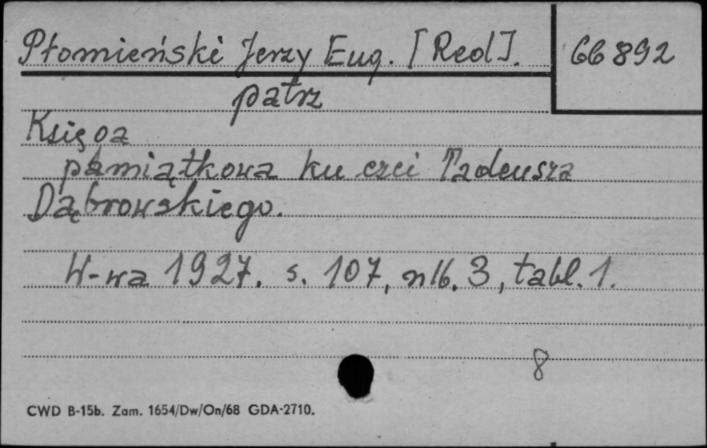 Płomieński Jerzy Eug. [Red]. 66892
patrz
Księga
pamiątkowa ku czci Tadeusza
Dąbrowskiego.
W-wa 1927. s. 107, nlb. 3, tabl. 1.
8
CWD B-15b. Zam. 1654/Dw/On/68 GDA-2710.